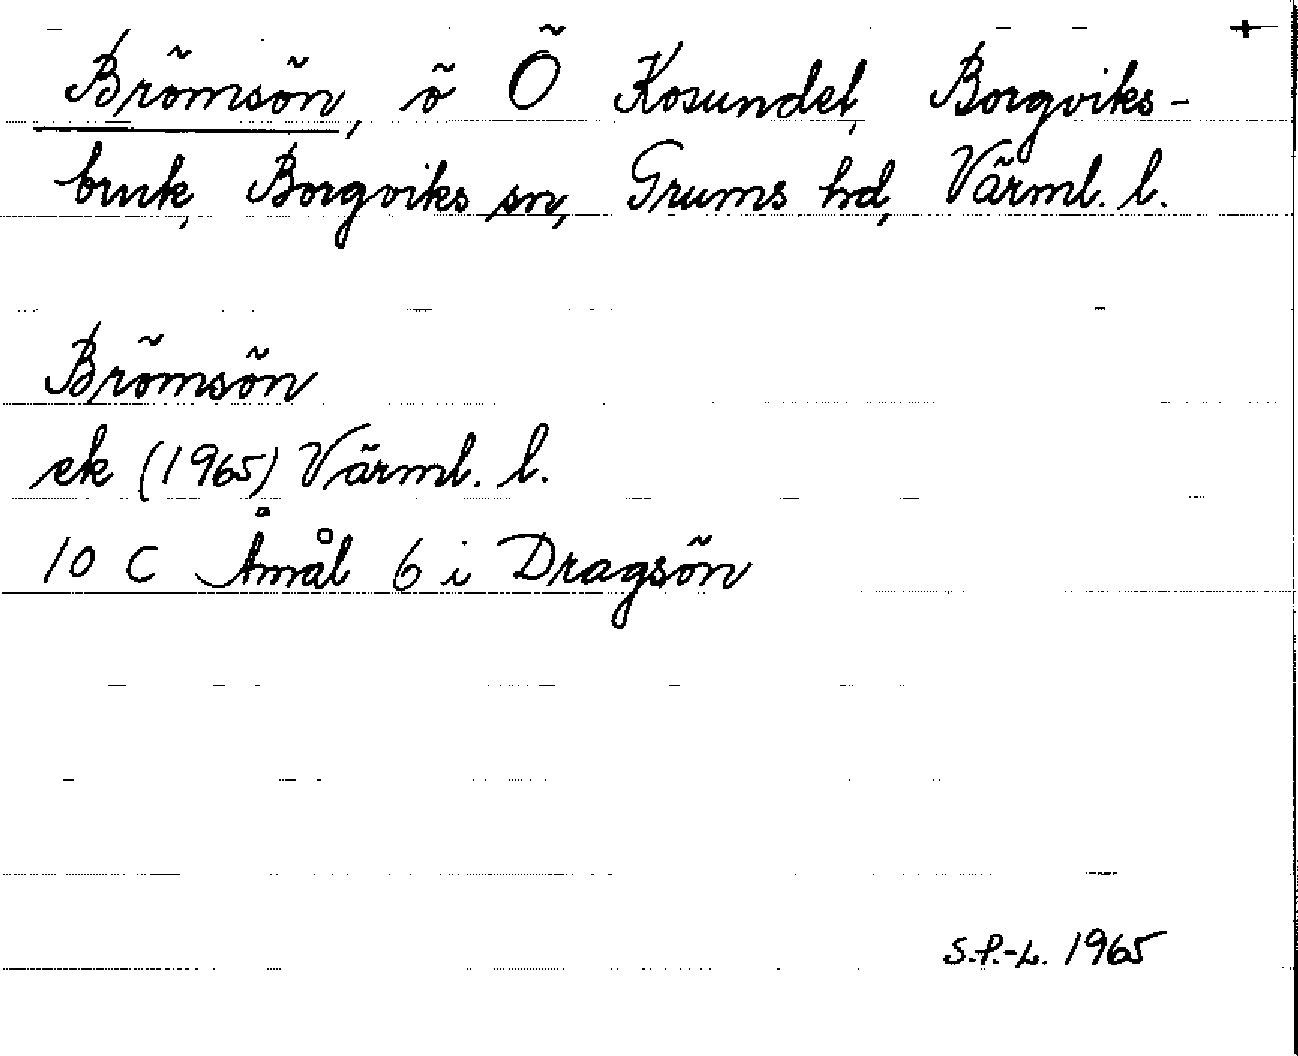 +
Brömsön, ö Ö Kosundet, Borgviks-
bruk, Borgviks sn, Grums hd, Värml. l.
Brömsön
ek (1965) Värml. l.
10 C Åmål 6 i Dragsön
S.P.-L. 1965